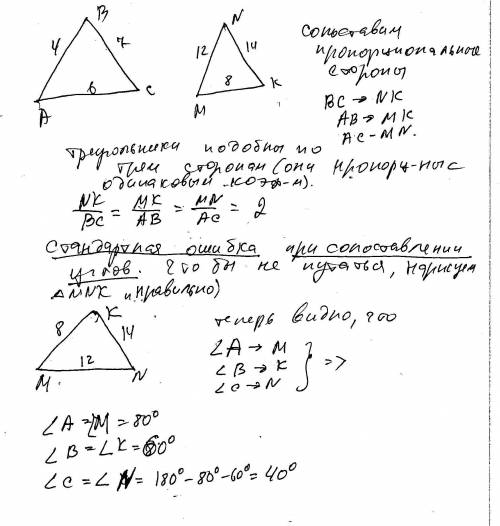 B
4
7
6
A
C
N
12
14
8
M
K
сопоставим
пропорциональные
стороны
BC → NK
AB → MK
AC - MN.
треугольники подобны по
трём сторонам (они пропорц-ны с
одинаковый коэф-м).
NK/BC = MK/AB = MN/AC = 2
Стандартная ошибка при сопоставлении
углов. Что бы не путаться, нарисуем
△MNK правильно)
K
8
14
12
M
N
теперь видно, что
∠A → M
∠B → K
∠C → N
} =>
∠A = ∠M = 80°
∠B = ∠K = 60°
∠C = ∠N = 180° - 80° - 60° = 40°